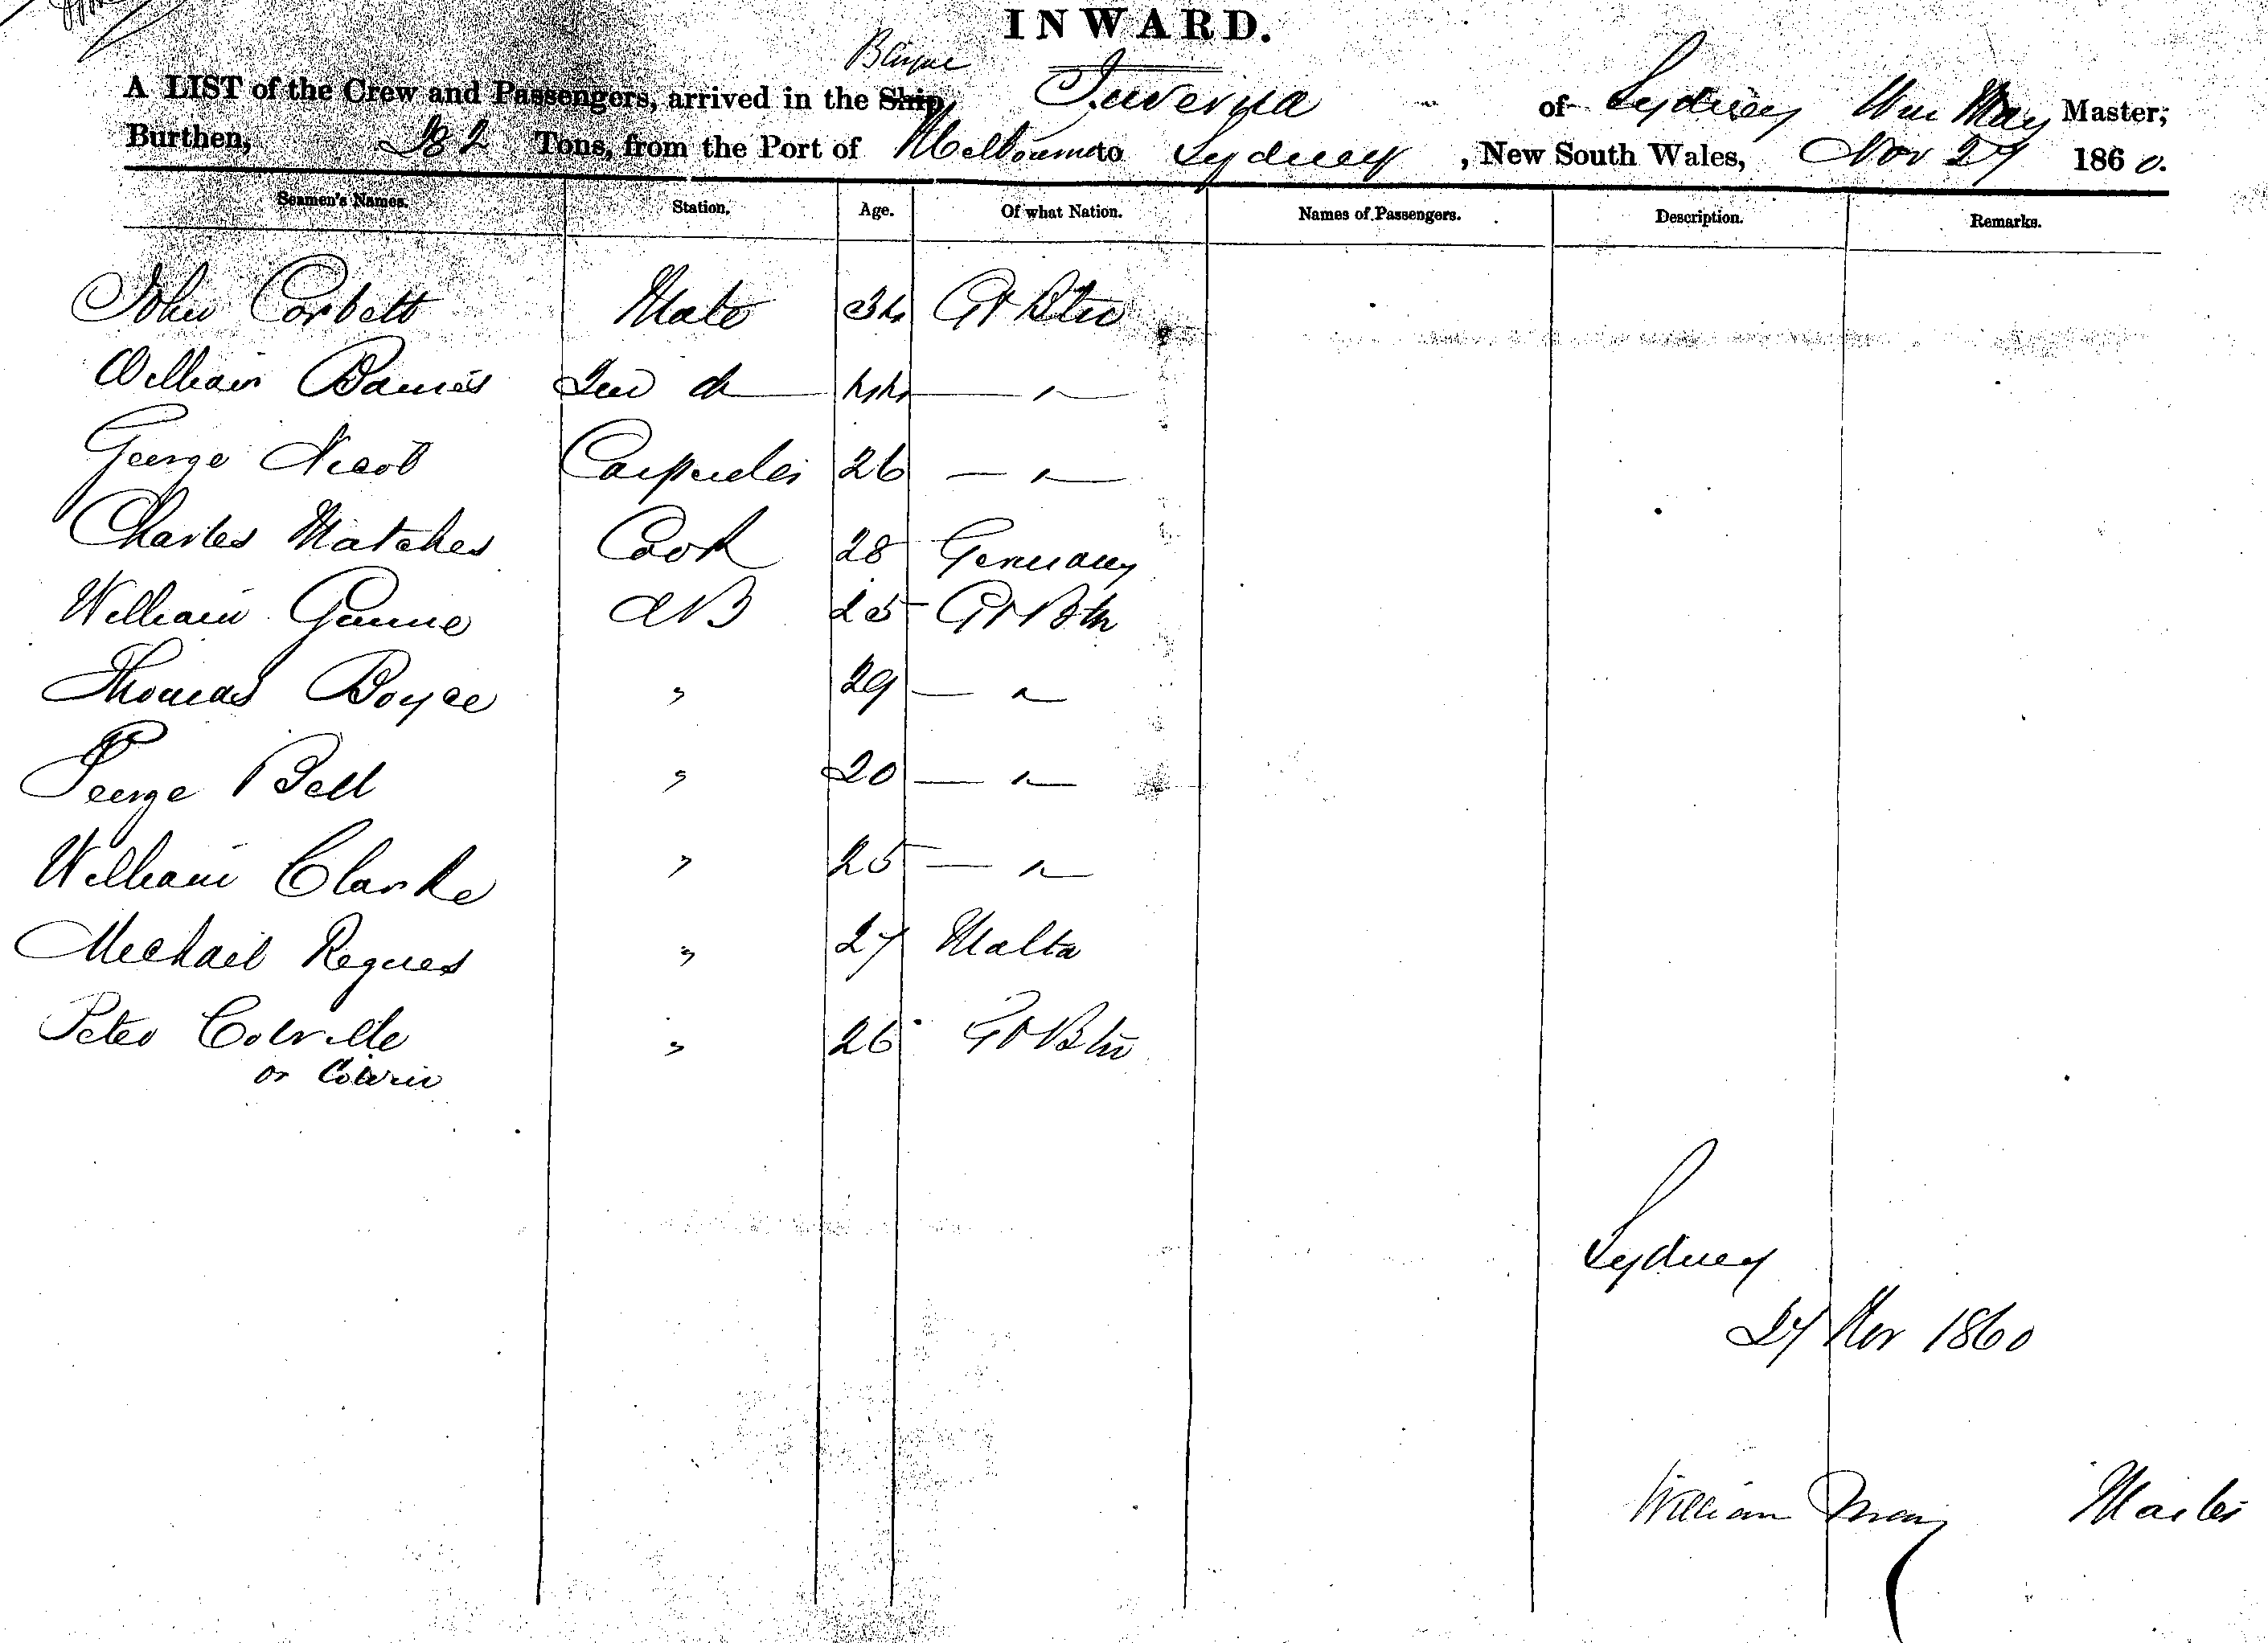 INWARD.
Barque
A LIST of the Crew and Passengers, arrived in the Ship, Juverna of Sydney Wm May Master,
Burthen, Tons, from the Port of Melbourne to Sydney, New South Wales, Nov 27 1860.
Seamen's Names. Station. Age. Of what Nation. Names of Passengers. Description. Remarks.
John Corbett Mate 34 Gt Btn
William Barnes 2nd do 44 "
George Nicol Carpenter 26 "
Charles Matches Cook 28 Germany
William Gunne AB 25 Gt Btn
Thomas Boyce " 29 "
George Bell " 20 "
William Clarke " 25 "
Michail " 27 Malta
Peter Colville " 26 Gt Btn
or
Sydney
27 Nov 1860
William May Master